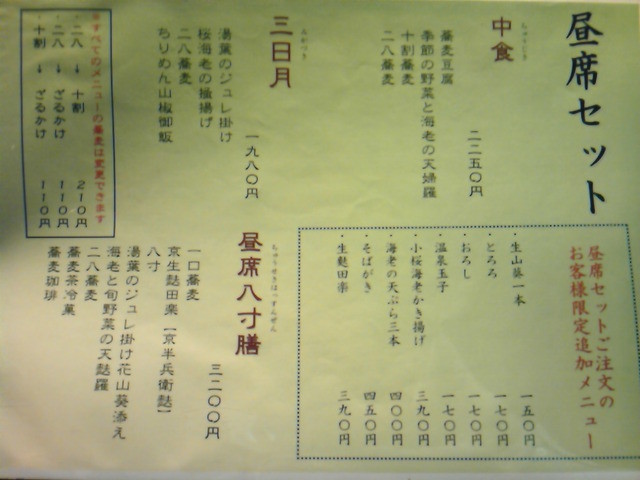 昼席セット
ちゅうじき
中食
二二五〇円
蕎麦豆腐
季節の野菜と海老の天婦羅
十割蕎麦
二八蕎麦
みかづき
三日月
一九八〇円
湯葉のジュレ掛け
桜海老の掻揚げ
二八蕎麦
ちりめん山椒御飯
※すべてのメニューの蕎麦は変更できます
・二八 → 十割 210円
・二八 → ざるかけ 110円
・十割 → ざるかけ 110円
昼席セットご注文の
お客様限定追加メニュー
・生山葵一本 一五〇円
・とろろ 一七〇円
・おろし 一七〇円
・温泉玉子 一七〇円
・小桜海老かき揚げ 三九〇円
・海老の天ぷら三本 四〇〇円
・そばがき 四五〇円
・生麩田楽 三九〇円
ちゅうせきはっすんぜん
昼席八寸膳
三二〇〇円
一口蕎麦
京生麩田楽【京半兵衛麩】
八寸
湯葉のジュレ掛け花山葵添え
海老と旬野菜の天麩羅
二八蕎麦
蕎麦茶冷菓
蕎麦珈琲